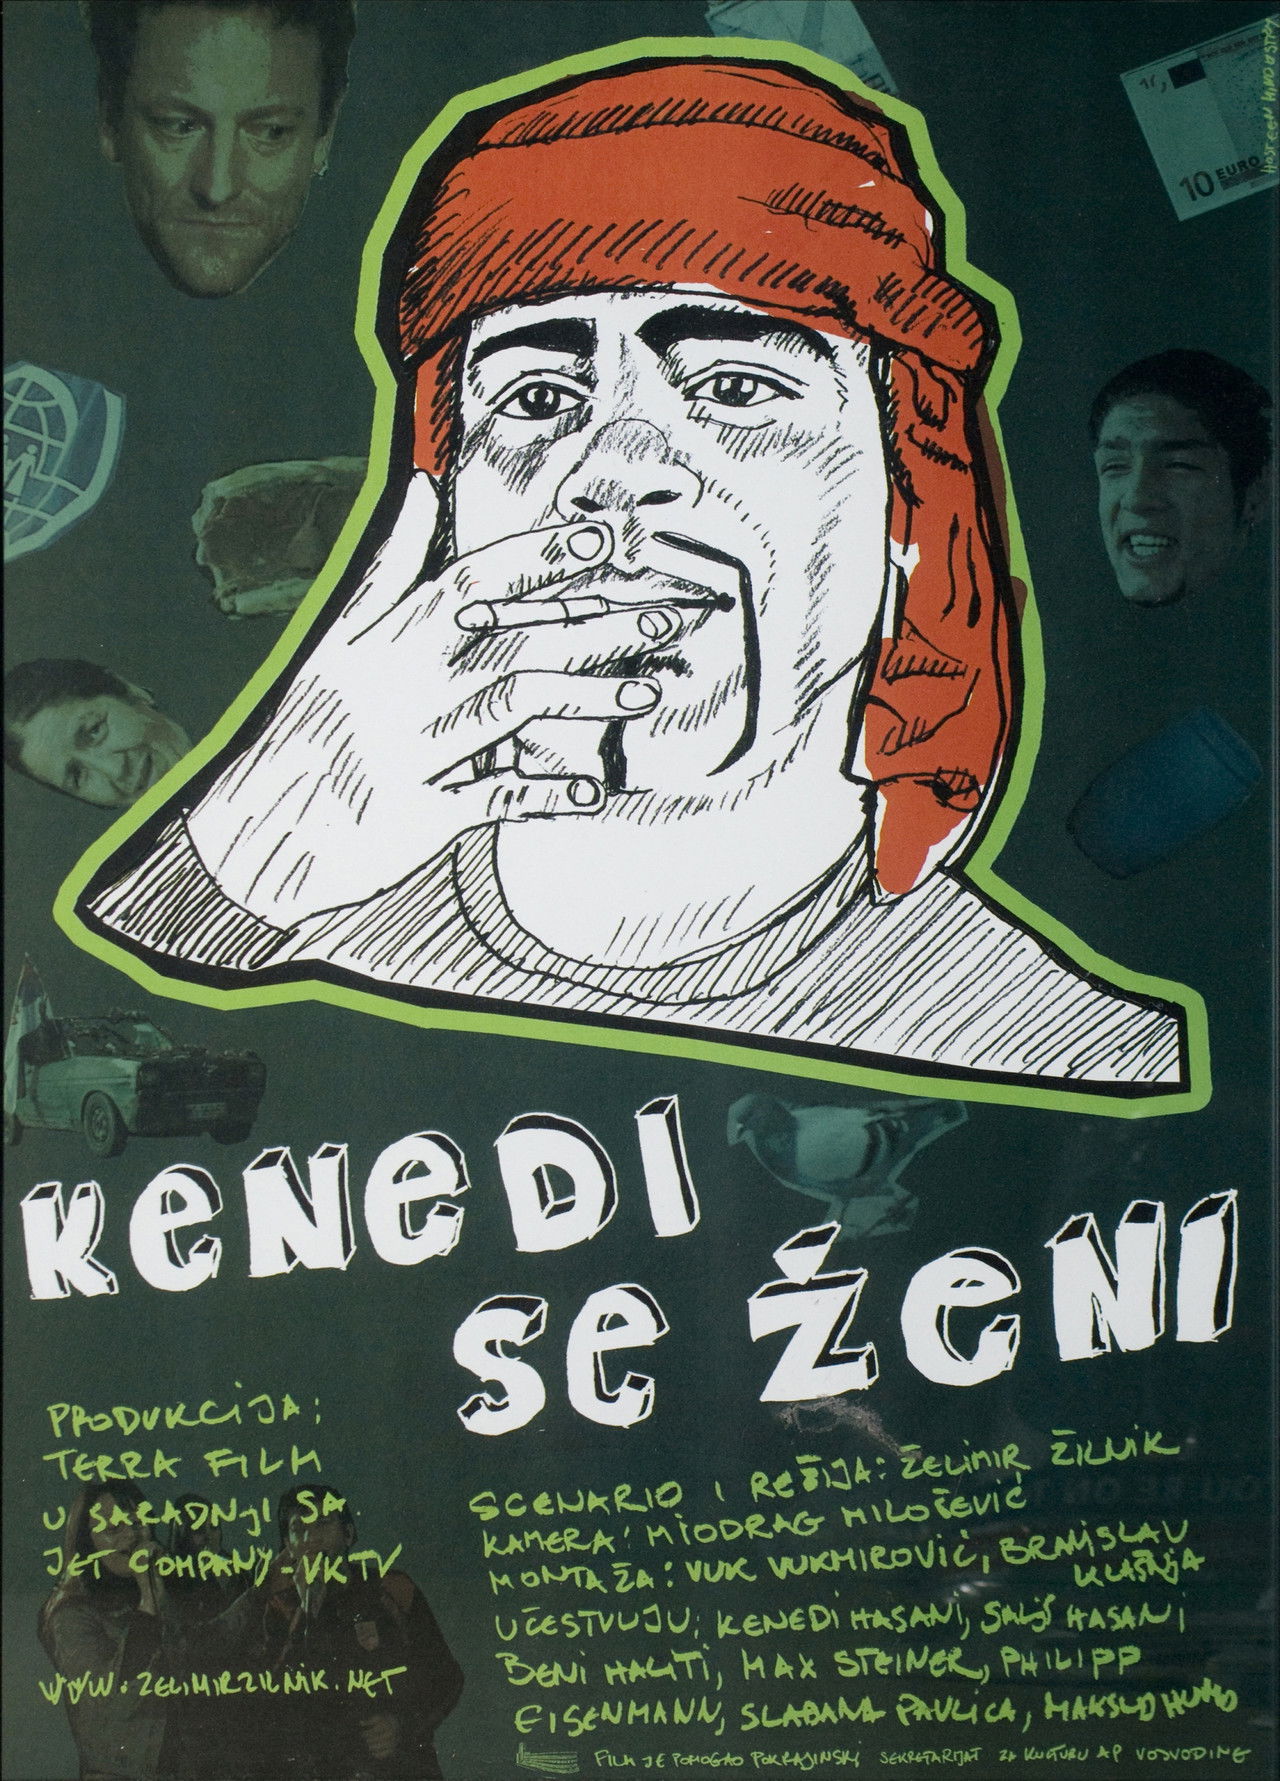 10 EURO
KENEDI
SE ŽENI
PRODUKCIJA:
TERRA FILM
U SARADNJI SA
JET COMPANY - VKTV
WWW.ZELIMIRZILNIK.NET
SCENARIO I REŽIJA: ŽELIMIR ŽILNIK
KAMERA: MIODRAG MILOŠEVIĆ
MONTAŽA: VUK VUKMIROVIĆ, BRANISLAV
KLAŠNJA
UČESTVUJU: KENEDI HASANI, SALIŠ HASANI
BENI HALITI, MAX STEINER, PHILIPP
EISENMANN, SLAĐANA PAVLICA, MAKSUD
FILM JE POMOGAO POKRAJINSKI SEKRETARIJAT ZA KULTURU AP VOJVODINE